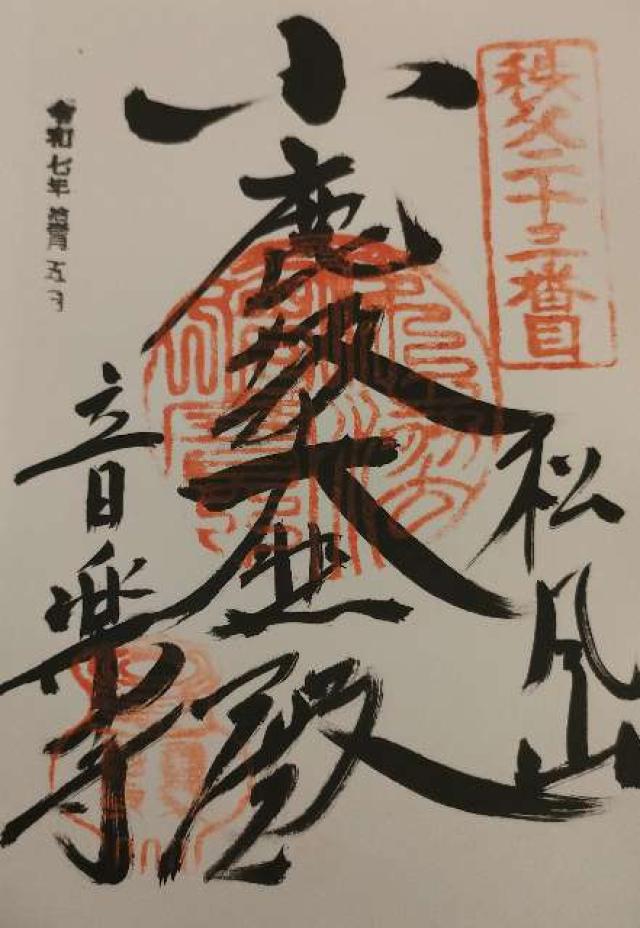 秩父二十三番目
松風山
小鹿坂大悲殿
音楽寺
令和七年
五日